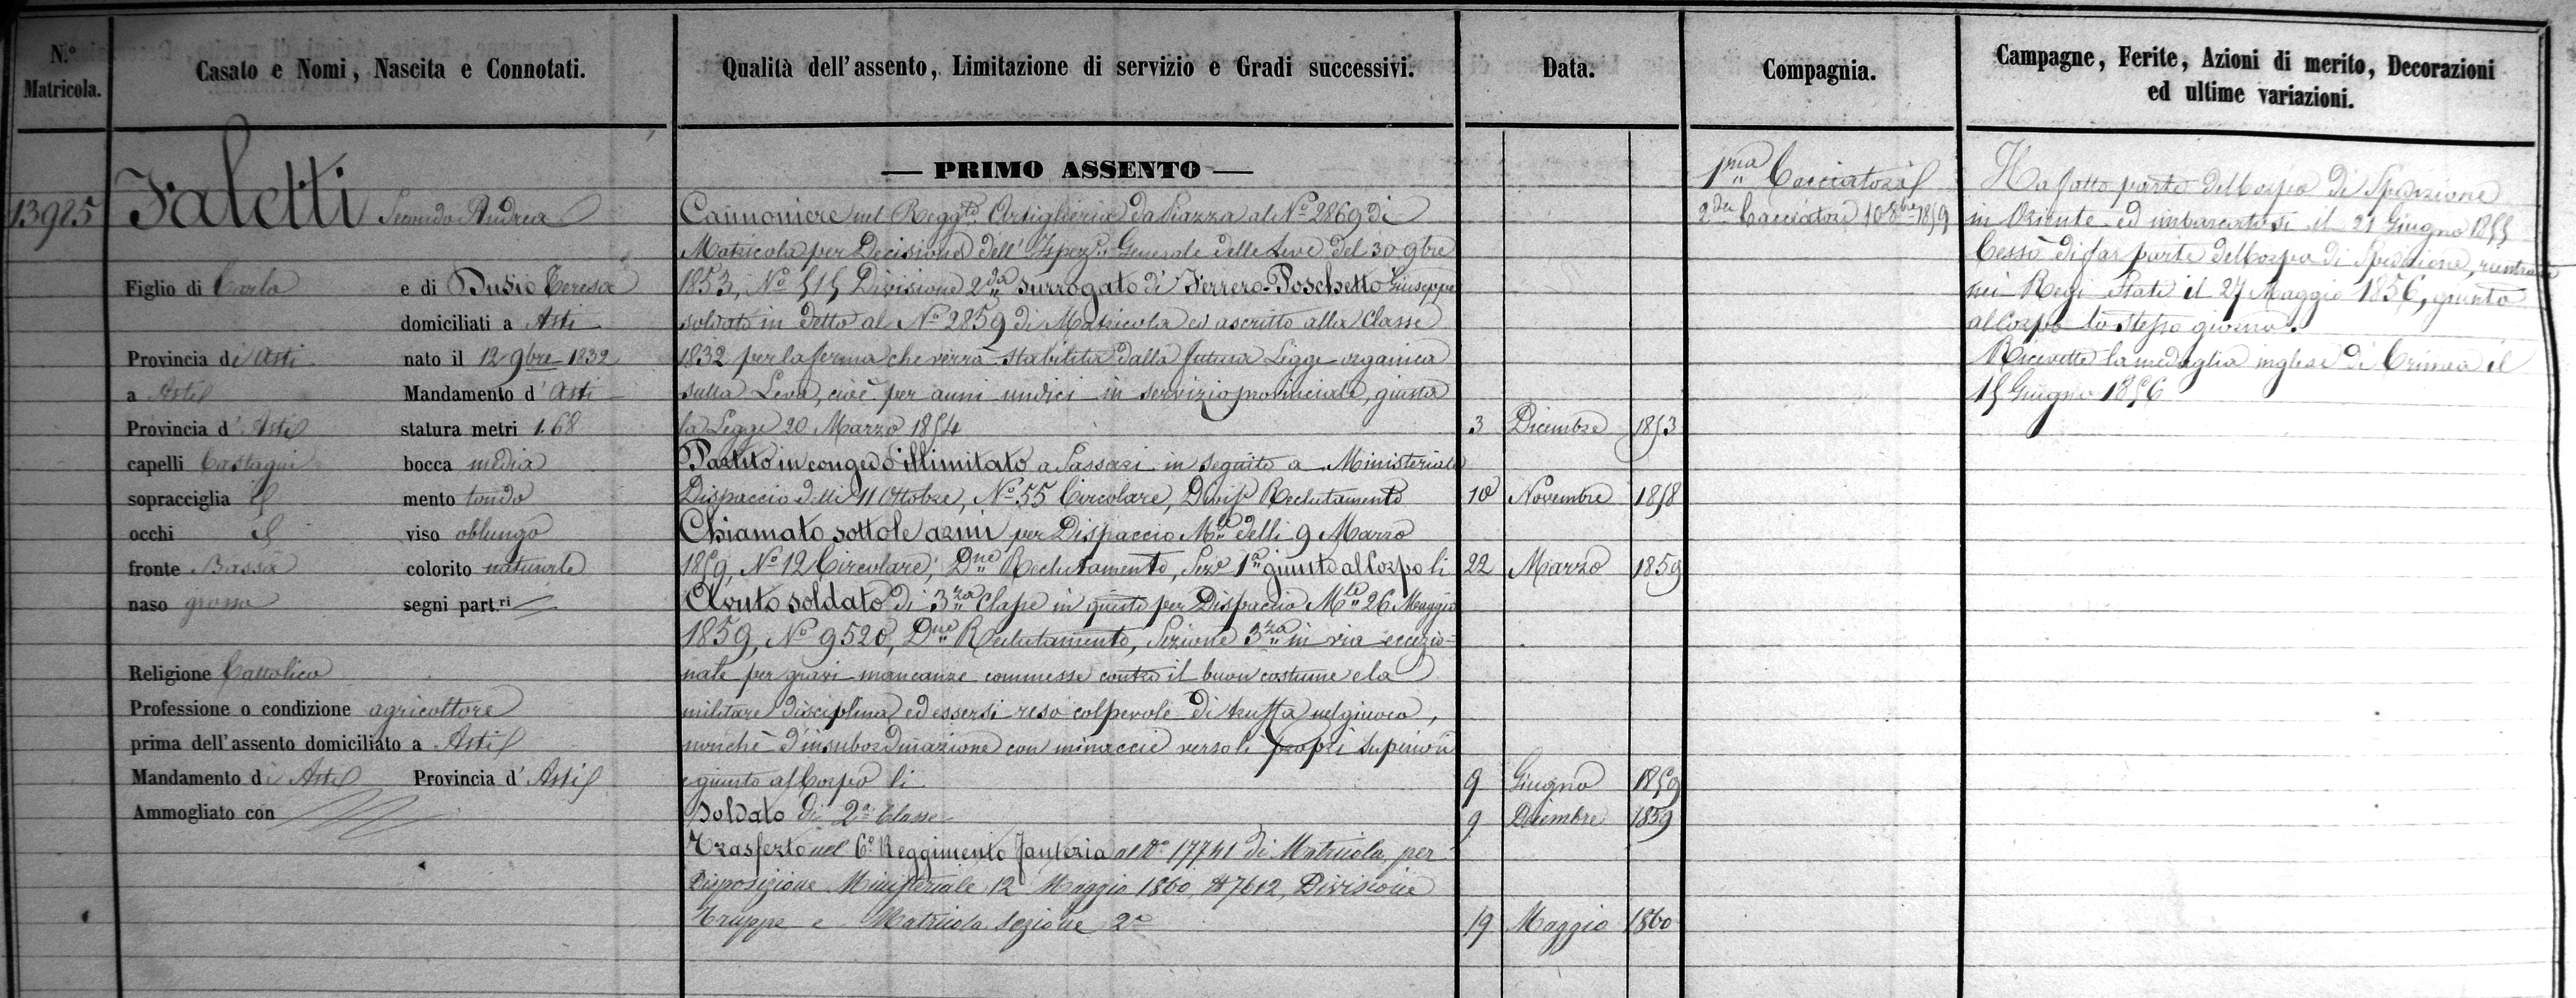 N.° Matricola.
Casato e Nomi, Nascita e Connotati.
Qualità dell'assento, Limitazione di servizio e Gradi successivi.
Data.
Compagnia.
Campagne, Ferite, Azioni di merito, Decorazioni
ed ultime variazioni.
13925
Faletti Secondo Andrea
Figlio di Carlo e di Dusio Teresa
domiciliati a Asti
Provincia di Asti nato il 12 9bre 1832
a Asti Mandamento d' Asti
Provincia d' Asti statura metri 1.68
capelli Castagni bocca media
sopracciglia id mento tondo
occhi id viso oblungo
fronte Bassa colorito naturale
naso grosso segni part.ri
Religione Cattolica
Professione o condizione agricoltore
prima dell'assento domiciliato a Asti
Mandamento di Asti Provincia d' Asti
Ammogliato con
— PRIMO ASSENTO —
Cannoniere nel Reggto Artiglieria da Piazza al No 2869 di
Matricola per Decisione dell' Ispezne Generale delle Leve del 30 9bre
1853, No 515 Divisione 2da surrogato di Ferrero-Poschetto Giuseppe
soldato in detto al No 2859 di Matricola ed ascritto alla Classe
1832 per la ferma che verrà stabilita dalla futura Legge organica
sulla Leva, cioè per anni undici in servizio provinciale, giusta
la Legge 20 Marzo 1854 3 Dicembre 1853
Partito in congedo illimitato a Sassari in seguito a Ministeriale
Dispaccio delli 11 Ottobre, No 55 Circolare, Divis. Reclutamento 10 Novembre 1858
Chiamato sotto le armi per Dispaccio Mle delli 9 Marzo
1859, No 12 Circolare, Dne Reclutamento, Seze 1a giunto al Corpo li 22 Marzo 1859
Avuto soldato di 3za Classe in questo per Dispaccio Mle 26 Maggio
1859, No 9520, Dne Reclutamento, Sezione 3za in via eccezio=
nale per gravi mancanze commesse contro il buon costume e la
militare disciplina ed essersi reso colpevole di truffa nel giuoco,
nonchè d'insubordinazione con minaccie verso li propri superiori
e giunto al Corpo li 9 Giugno 1859
Soldato di 2a Classe 9 Dicembre 1859
Trasferto nel 6o Reggimento Fanteria al No 17741 di Matricola, per
Disposizione Ministeriale 12 Maggio 1860, No 7612, Divisione
Truppe e Matricola Sezione 2a 19 Maggio 1860
1ma Cacciatori
2da Cacciatori 10 8bre 1859
Ha fatto parte del Corpo di Spedizione
in Oriente ed imbarcatosi il 21 Giugno 1855
Cessò di far parte del Corpo di Spedizione, rientrato
nei Regi Stati il 27 Maggio 1856, giunto
al Corpo lo stesso giorno.
Ricevette la medaglia inglese di Crimea il
15 Giugno 1856